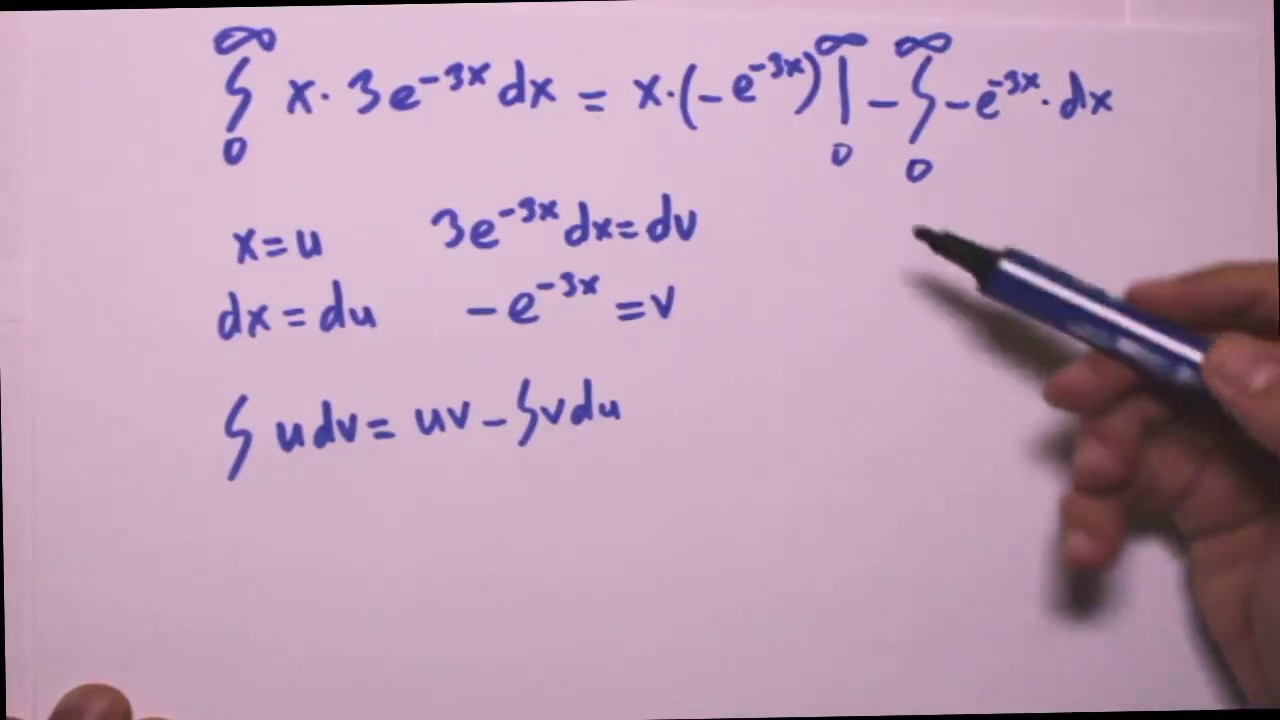 ∫₀^∞ x · 3e^{-3x} dx = x · (-e^{-3x}) |₀^∞ - ∫₀^∞ -e^{-3x} · dx
x = u 3e^{-3x} dx = dv
dx = du -e^{-3x} = v
∫ u dv = uv - ∫ v du